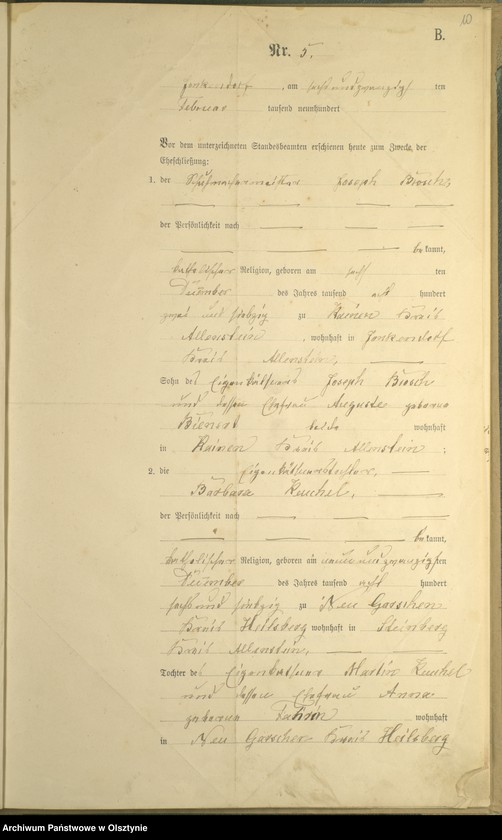 10
B.
Nr. 5.
am sechsundzwanzig ten
Februar tausend neunhundert
Vor dem unterzeichneten Standesbeamten erschienen heute zum Zweck der
Eheschließung:
1. der Schuhmachermeister Joseph
der Persönlichkeit nach
bekannt,
katholischer Religion, geboren am ten
Dezember des Jahres tausend acht hundert
zwei und siebzig zu Kreis
Allenstein, wohnhaft in Jonkendorf
Kreis Allenstein,
Sohn des Eigenkäthners Joseph
und dessen Ehefrau Auguste geborene
beide wohnhaft
in Kreis Allenstein;
2. die Eigenkäthnertochter,
Barbara Kuchel,
der Persönlichkeit nach
bekannt,
katholischer Religion, geboren am neunundzwanzigsten
Dezember des Jahres tausend acht hundert
sechsundsiebzig zu Neu Garschen
Kreis Heilsberg wohnhaft in Steinberg
Kreis Allenstein,
Tochter des Eigenkäthner Martin Kuchel
und dessen Ehefrau Anna
geborene wohnhaft
in Neu Garschen Kreis Heilsberg
Archiwum Państwowe w Olsztynie